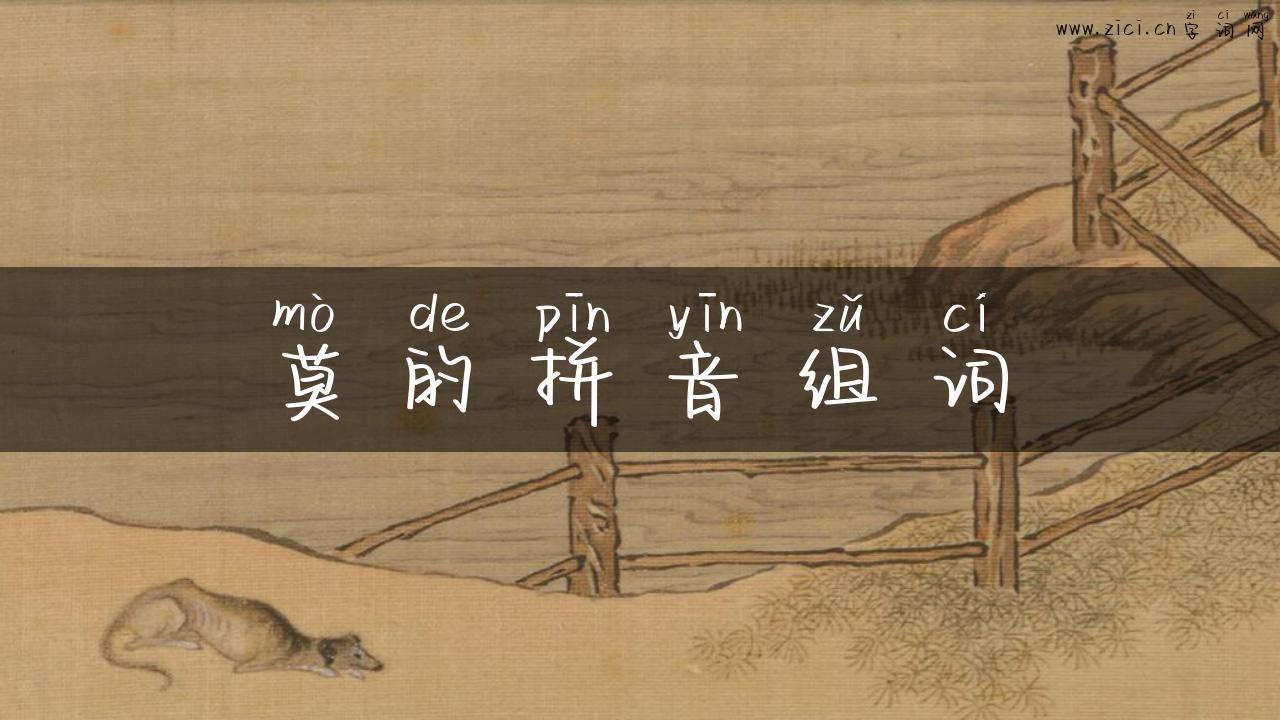 zì cí wǎng
www.zici.cn 字词网
mò de pīn yīn zǔ cí
莫的拼音组词